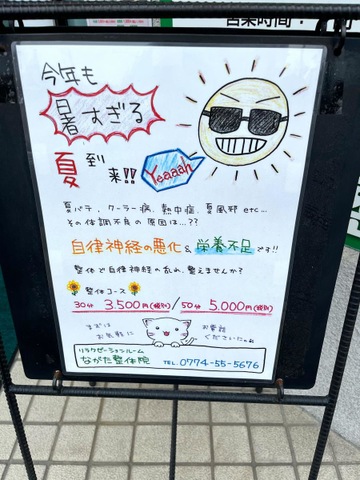 営業時間：
今年も
暑すぎる
夏到来!!
Yeaaah
夏バテ、クーラー病、熱中症、夏風邪 etc...
その体調不良の原因は...??
自律神経の悪化&栄養不足です!!
整体で自律神経の乱れ、整えませんか?
整体コース
30分 3,500円(税別)/50分 5,000円(税別)
まずは お電話
お気軽に くださいね
リラクゼーションルーム
ながた整体院 TEL.0774-55-5676